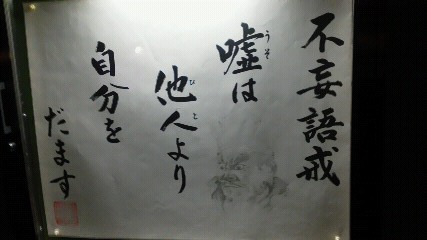 不妄語戒
嘘は
他人より
自分を
だます